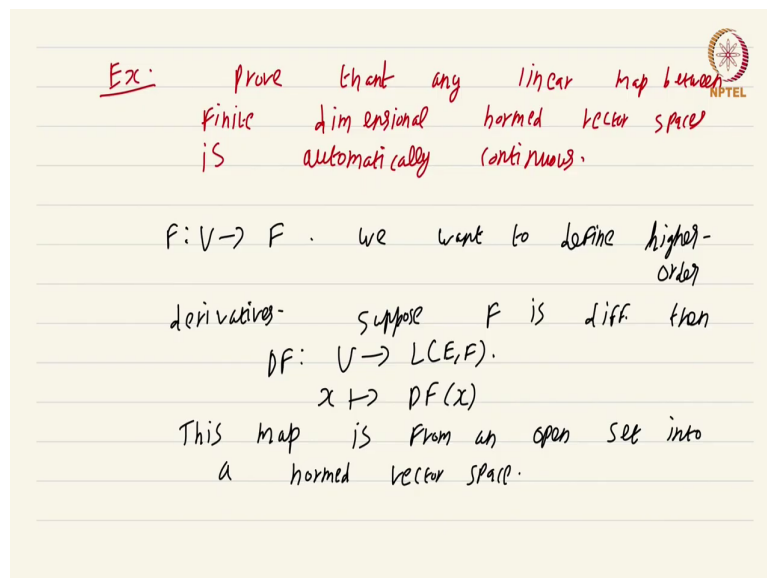 Ex: Prove thant any linear map between
NPTEL
Finite dimensional normed vector spaces
is automatically continuous.
F: U → F. We want to define higher-
order
derivatives. Suppose F is diff. then
DF: U → L(E,F).
x ↦ DF(x)
This map is from an open set into
a normed vector space.